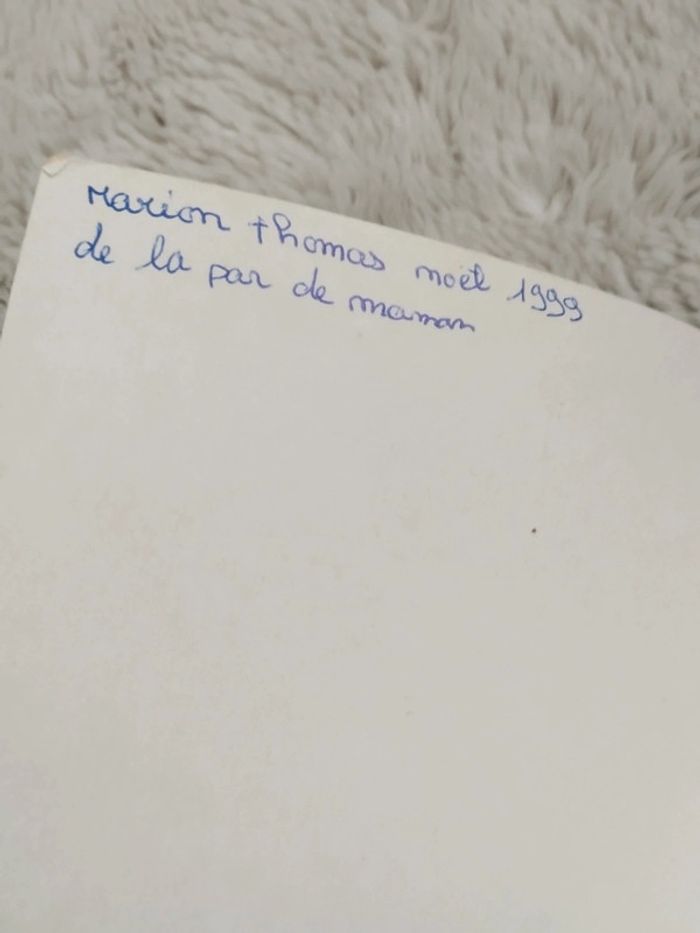 Marion thomas noël 1999
de la par de maman